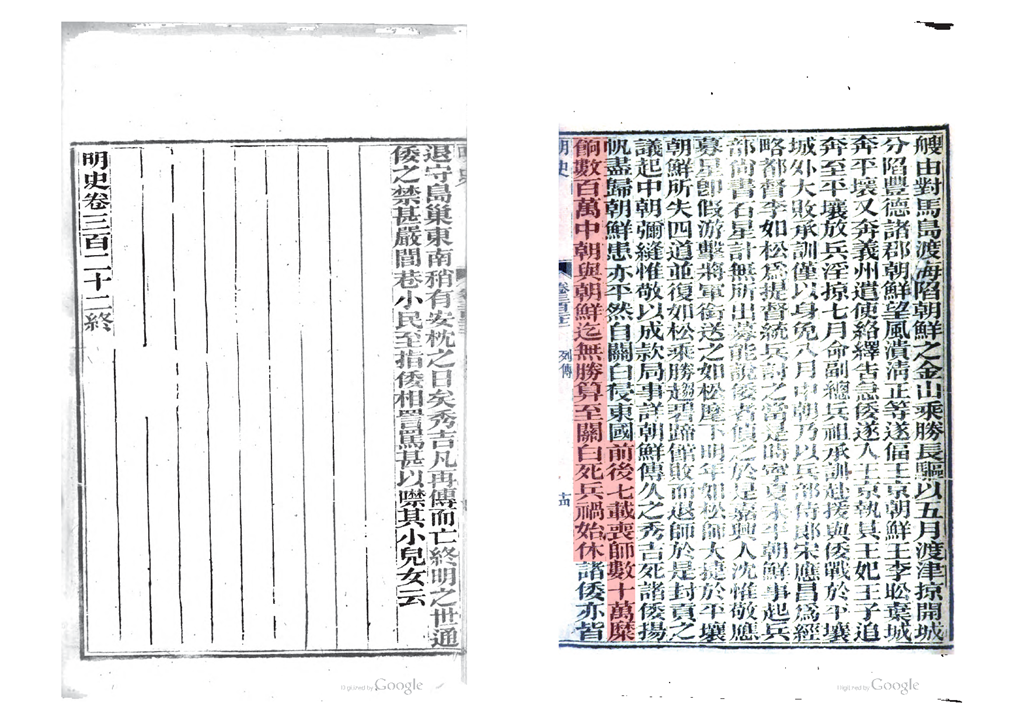 艘由對馬島渡海陷朝鮮之釜山乘勝長驅以五月渡津掠開城
分陷豐德諸郡朝鮮望風潰清正等遂偪王京朝鮮王李昖棄城
奔平壤又奔義州遣使絡繹告急倭遂入王京執其王妃王子追
奔至平壤放兵淫掠七月命副總兵祖承訓赴援與倭戰於平壤
城外大敗承訓僅以身免八月中朝乃以兵部侍郎宋應昌爲經
略都督李如松爲提督統兵討之當是時寧夏未平朝鮮事起兵
部尚書石星計無所出募能說倭者偵之於是嘉興人沈惟敬應
募星卽假游擊將軍銜送之如松麾下明年如松師大捷於平壤
朝鮮所失四道並復如松乘勝趨碧蹄館敗而退師於是封貢之
議起中朝彌縫惟敬以成款局事詳朝鮮傳久之秀吉死諸倭揚
帆盡歸朝鮮患亦平然自關白侵東國前後七載喪師數十萬糜
餉數百萬中朝與朝鮮迄無勝算至關白死兵禍始休諸倭亦皆
明史
列傳
退守島巢東南稍有安枕之日矣秀吉凡再傳而亡終明之世通
倭之禁甚嚴閭巷小民至指倭相詈罵甚以噤其小兒女云
明史卷三百二十二終
Digitized by Google
Digitized by Google